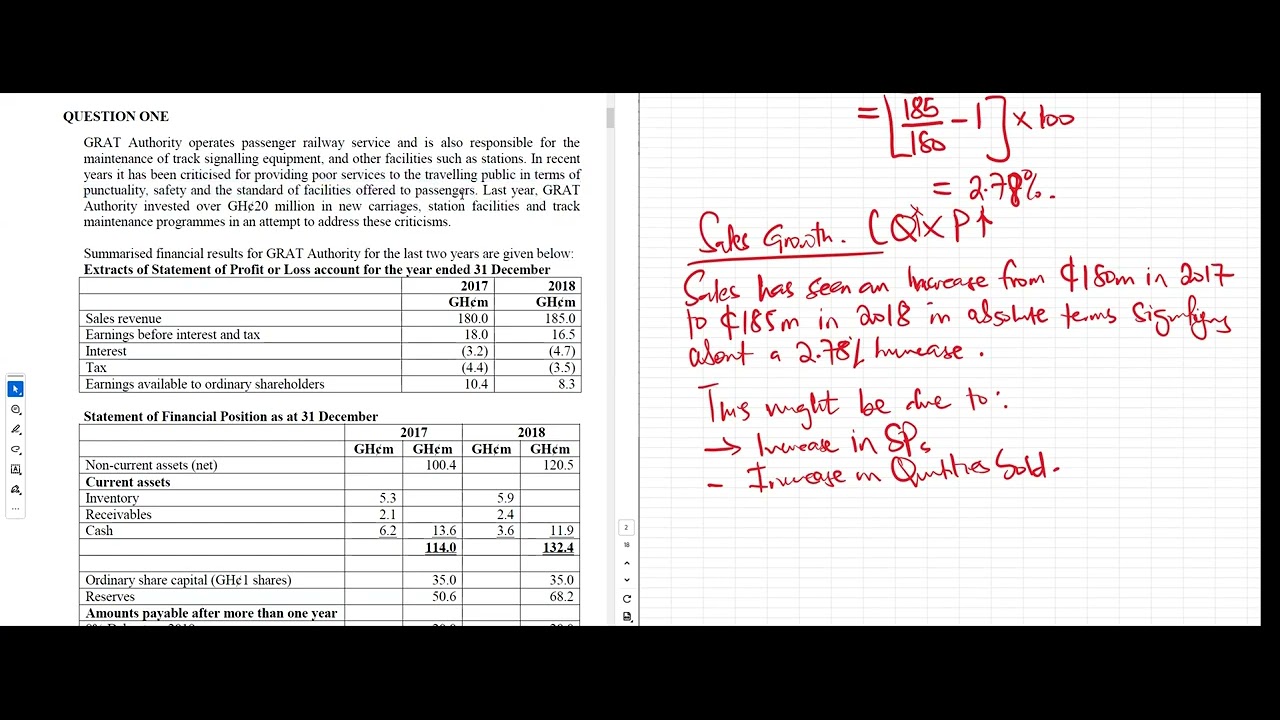 QUESTION ONE
GRAT Authority operates passenger railway service and is also responsible for the
maintenance of track signalling equipment, and other facilities such as stations. In recent
years it has been criticised for providing poor services to the travelling public in terms of
punctuality, safety and the standard of facilities offered to passengers. Last year, GRAT
Authority invested over GH¢20 million in new carriages, station facilities and track
maintenance programmes in an attempt to address these criticisms.
Summarised financial results for GRAT Authority for the last two years are given below:
Extracts of Statement of Profit or Loss account for the year ended 31 December
2017 2018
GH¢m GH¢m
Sales revenue 180.0 185.0
Earnings before interest and tax 18.0 16.5
Interest (3.2) (4.7)
Tax (4.4) (3.5)
Earnings available to ordinary shareholders 10.4 8.3
Statement of Financial Position as at 31 December
2017 2018
GH¢m GH¢m GH¢m GH¢m
Non-current assets (net) 100.4 120.5
Current assets
Inventory 5.3 5.9
Receivables 2.1 2.4
Cash 6.2 13.6 3.6 11.9
114.0 132.4
Ordinary share capital (GH¢1 shares) 35.0 35.0
Reserves 50.6 68.2
Amounts payable after more than one year
= [185/180 - 1] × 100
= 2.78%.
Sales Growth. (Q↑ × P↑
Sales has seen an Increase from ¢180m in 2017
to ¢185m in 2018 in absolute terms signifying
about a 2.78% Increase.
This might be due to:
→ Increase in SPs
- Increase in Quntities Sold.
2
18